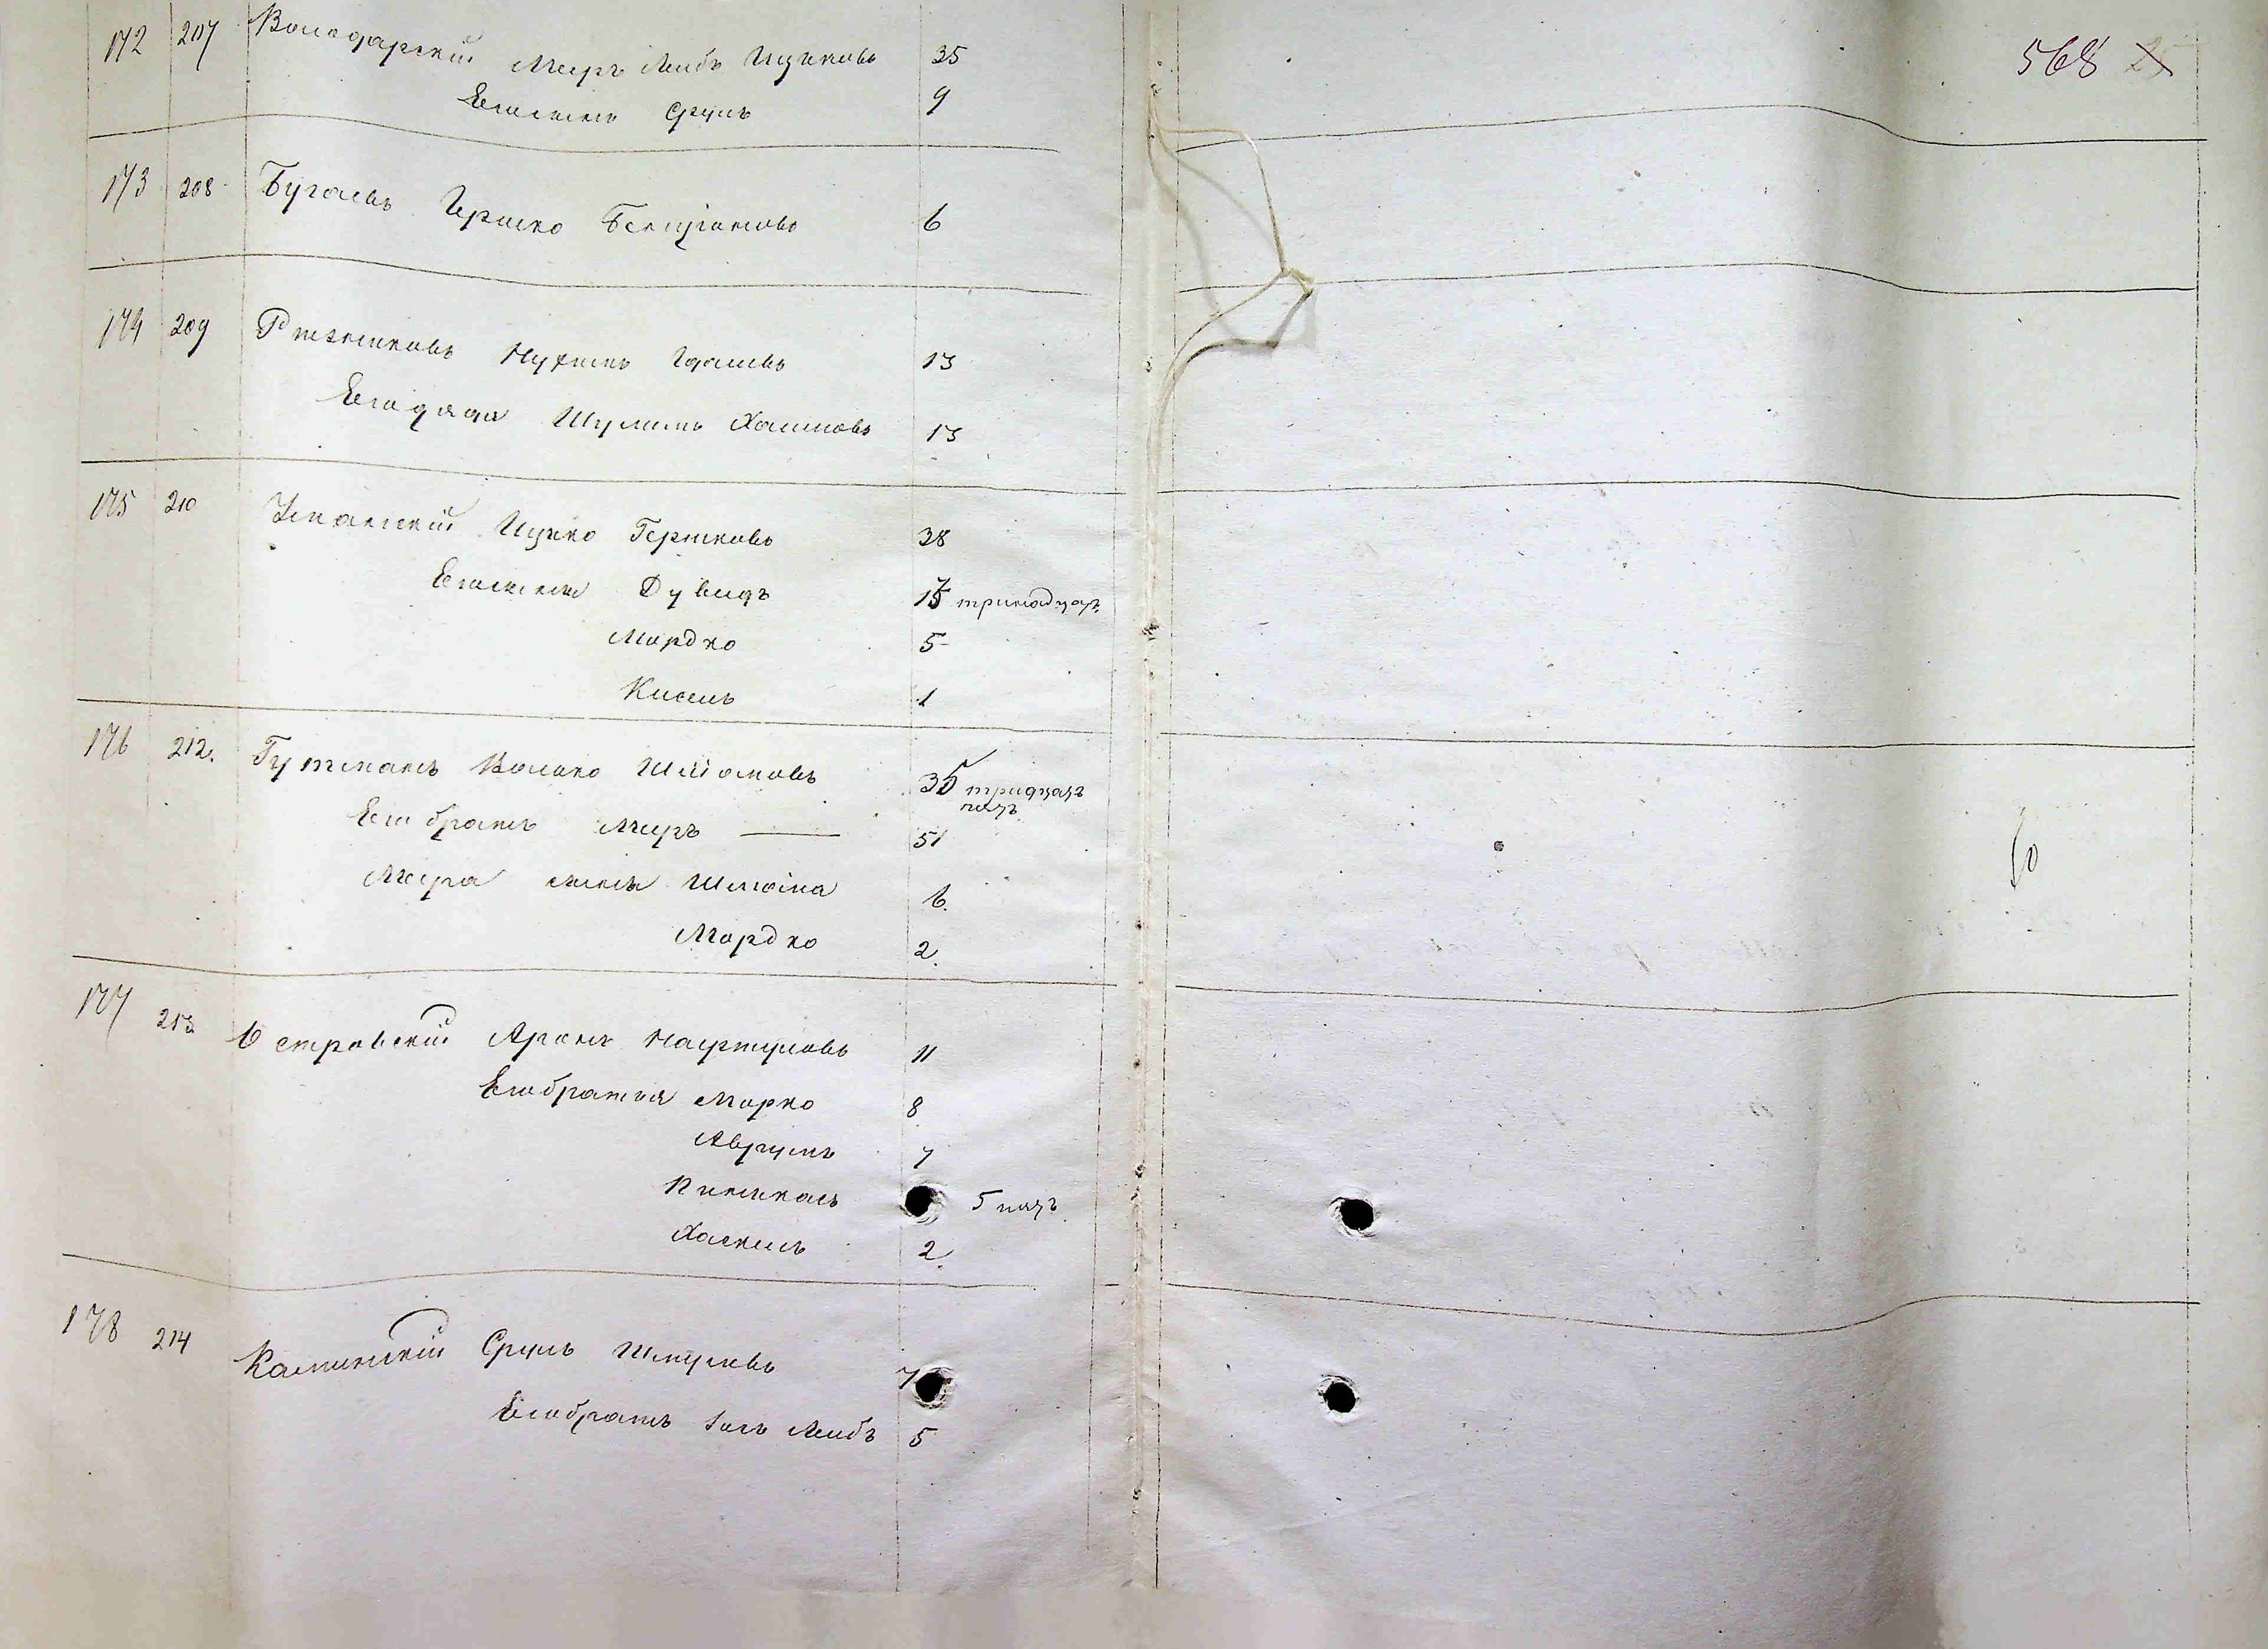 568 25
172 207 Володарский Меер Лейб Ицков 35
Его сын Сруль 9
173 208 Бугаевъ Гершко Бенционовъ 6
174 209 Нухимъ Идалевъ 13
Его дядя Шулимъ Хаимовъ 13
175 210 Уманский Ицко Гершковъ 38
Его сыновья Дувидъ 13 тринадцать
Мордко 5
Кисель 1
176 212. Гутманъ Волько Шлиомовъ 35 тридцать пять
Его братъ Меер — 51
Меера сыновья Шлиома 6.
Мордко 2.
177 213 Островский Аронъ Нафтуловъ 11
Его братья Марко 8
Аврумъ 7
Пинхасъ 5 пять
Хаскель 2.
178 214 Каминский Сруль Шмулевъ 7
Его братъ Лейбъ 5